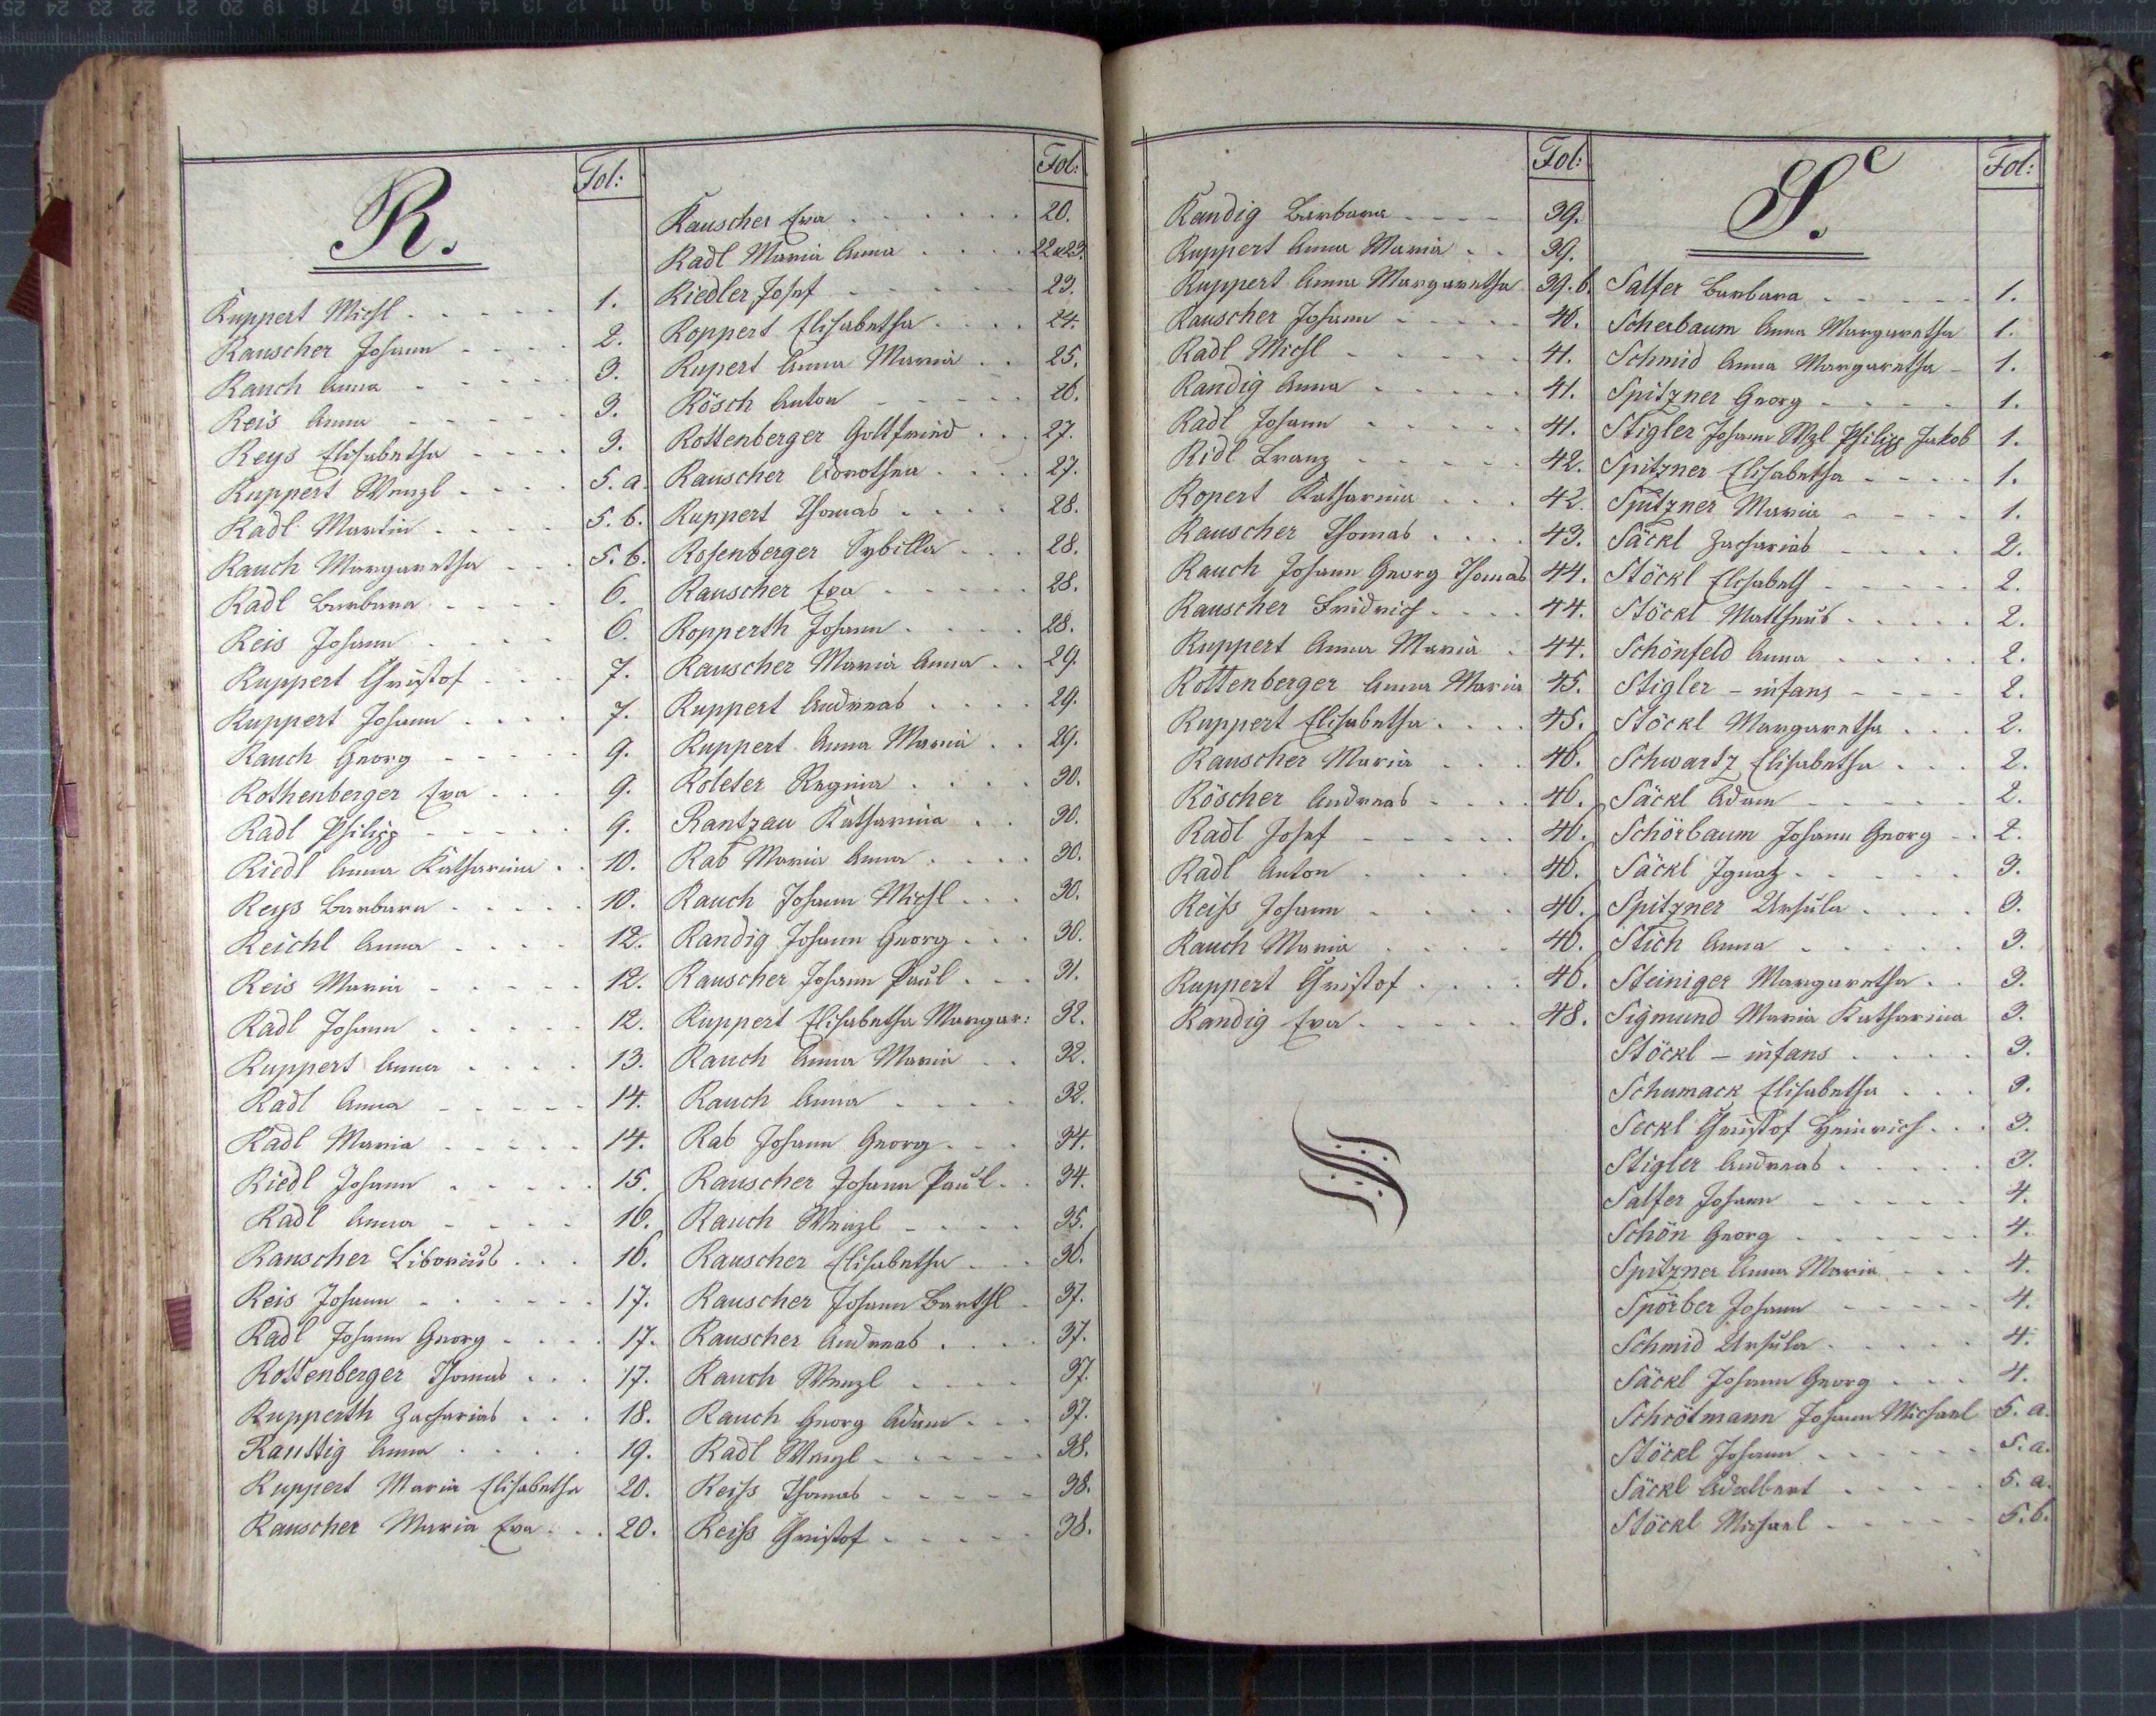 R.
Fol:
Ruppert Michl 1.
Rauscher Johann 2.
Rauch Anna 3.
Reis Anna 3.
Reys Elisabetha 3.
Ruppert Wenzl 5. a.
Radl Martin 5. b.
Rauch Margaretha 5. b.
Radl Barbara 6.
Reis Johann 6.
Ruppert Christof 7.
Ruppert Johann 7.
Rauch Georg 9.
Rothenberger Eva 9.
Radl Philipp 9.
Riedl Anna Katharina 10.
Reys Barbara 10.
Reichl Anna 12.
Reis Maria 12.
Radl Johann 12.
Ruppert Anna 13.
Radl Anna 14.
Radl Maria 14.
Riedl Johann 15.
Radl Anna 16.
Rauscher Liborius 16.
Reis Johann 17.
Radl Johann Georg 17.
Rottenberger Thomas 17.
Rupperth Zacharias 18.
Anna 19.
Ruppert Maria Elisabetha 20.
Rauscher Maria Eva 20.
Fol:
Rauscher Eva 20.
Radl Maria Anna 22 u 23.
Riedler Josef 23.
Roppert Elisabetha 24.
Rupert Anna Maria 25.
Rösch Anton 26.
Rottenberger Gottfried 27.
Rauscher Dorothea 27.
Ruppert Thomas 28.
Rosenberger Sybilla 28.
Rauscher Eva 28.
Ropperth Johann 28.
Rauscher Maria Anna 29.
Ruppert Andreas 29.
Ruppert Anna Maria 29.
Roleter Regina 30.
Rantzau Katharina 30.
Rab Maria Anna 30.
Rauch Johann Michl 30.
Randig Johann Georg 30.
Rauscher Johann Paul 31.
Ruppert Elisabetha Margar: 32.
Rauch Anna Maria 32.
Rauch Anna 32.
Rab Johann Georg 34.
Rauscher Johann Paul 34.
Rauch Wenzl 35.
Rauscher Elisabetha 36.
Rauscher Johann Barthl 37.
Rauscher Andreas 37.
Rauch Wenzl 37.
Rauch Georg Adam 37.
Radl Wenzl 38.
Reiß Thomas 38.
Reiß Christof 38.
Fol:
Randig Barbara 39.
Ruppert Anna Maria 39.
Ruppert Anna Margaretha 39. b.
Rauscher Johann 40.
Radl Michl 41.
Randig Anna 41.
Radl Johann 41.
Ridl Franz 42.
Ropert Katharina 42.
Rauscher Thomas 43.
Rauch Johann Georg Thomas 44.
Rauscher Fridrich 44.
Ruppert Anna Maria 44.
Rottenberger Anna Maria 45.
Ruppert Elisabetha 45.
Rauscher Maria 46.
Röscher Andreas 46.
Radl Josef 46.
Radl Anton 46.
Reiß Johann 46.
Rauch Maria 46.
Ruppert Christof 46.
Randig Eva 48.
S.
Fol:
Salfer Barbara 1.
Scherbaum Anna Margaretha 1.
Schmid Anna Margaretha 1.
Spitzner Georg 1.
Stigler Johann Wzl Philipp Jakob 1.
Spitzner Elisabetha 1.
Spitzner Maria 1.
Säckl Zacharias 2.
Stöckl Elisabeth 2.
Stöckl Mattheus 2.
Schönfeld Anna 2.
Stigler – infans 2.
Stöckl Margaretha 2.
Schwartz Elisabetha 2.
Säckl Adam 2.
Schörbaum Johann Georg 2.
Säckl Ignatz 3.
Spitzner Ursula 3.
Stich Anna 3.
Steiniger Margaretha 3.
Sigmund Maria Katharina 3.
Stöckl – infans 3.
Schumack Elisabetha 3.
Seckl Christof Heinrich 3.
Stigler Andreas 3.
Salfer Johann 4.
Schön Georg 4.
Spitzner Anna Maria 4.
Spörber Johann 4.
Schmid Ursula 4.
Säckl Johann Georg 4.
Schrötmann Johann Michael 5. a.
Stöckl Johann 5. a.
Säckl Adalbert 5. a.
Stöckl Michael 5. b.